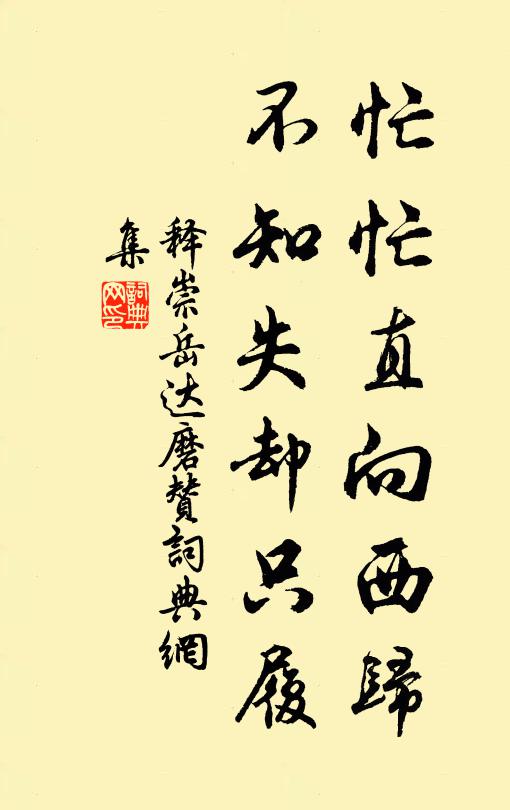 忙忙直向西歸
不知失却只履
释崇岳达磨贊詞典網
集
詞典
网印